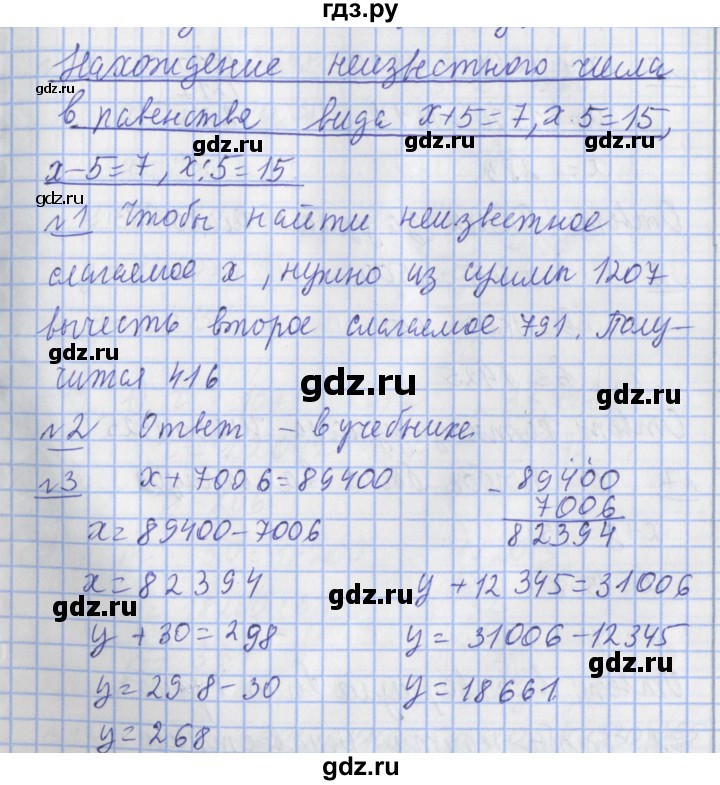 гдз.ру
Нахождение неизвестного числа
в равенства вида x+5=7, x·5=15,
x-5=7, x:5=15
№1 Чтобы найти неизвестное
слагаемое x, нужно из суммы 1207
вычесть второе слагаемое 791. Полу-
чится 416
№2 Ответ - в учебнике.
№3 x+7006=89400
x=89400-7006
x=82394
y+30=298
y=298-30
y=268
-89400
7006
82394
y+12345=31006
y=31006-12345
y=18661
gdz.ru
gdz.ru
gdz.ru
gdz.ru
gdz.ru
gdz.ru
gdz.ru
gdz.ru
gdz.ru
gdz.ru
gdz.ru
gdz.ru
gdz.ru